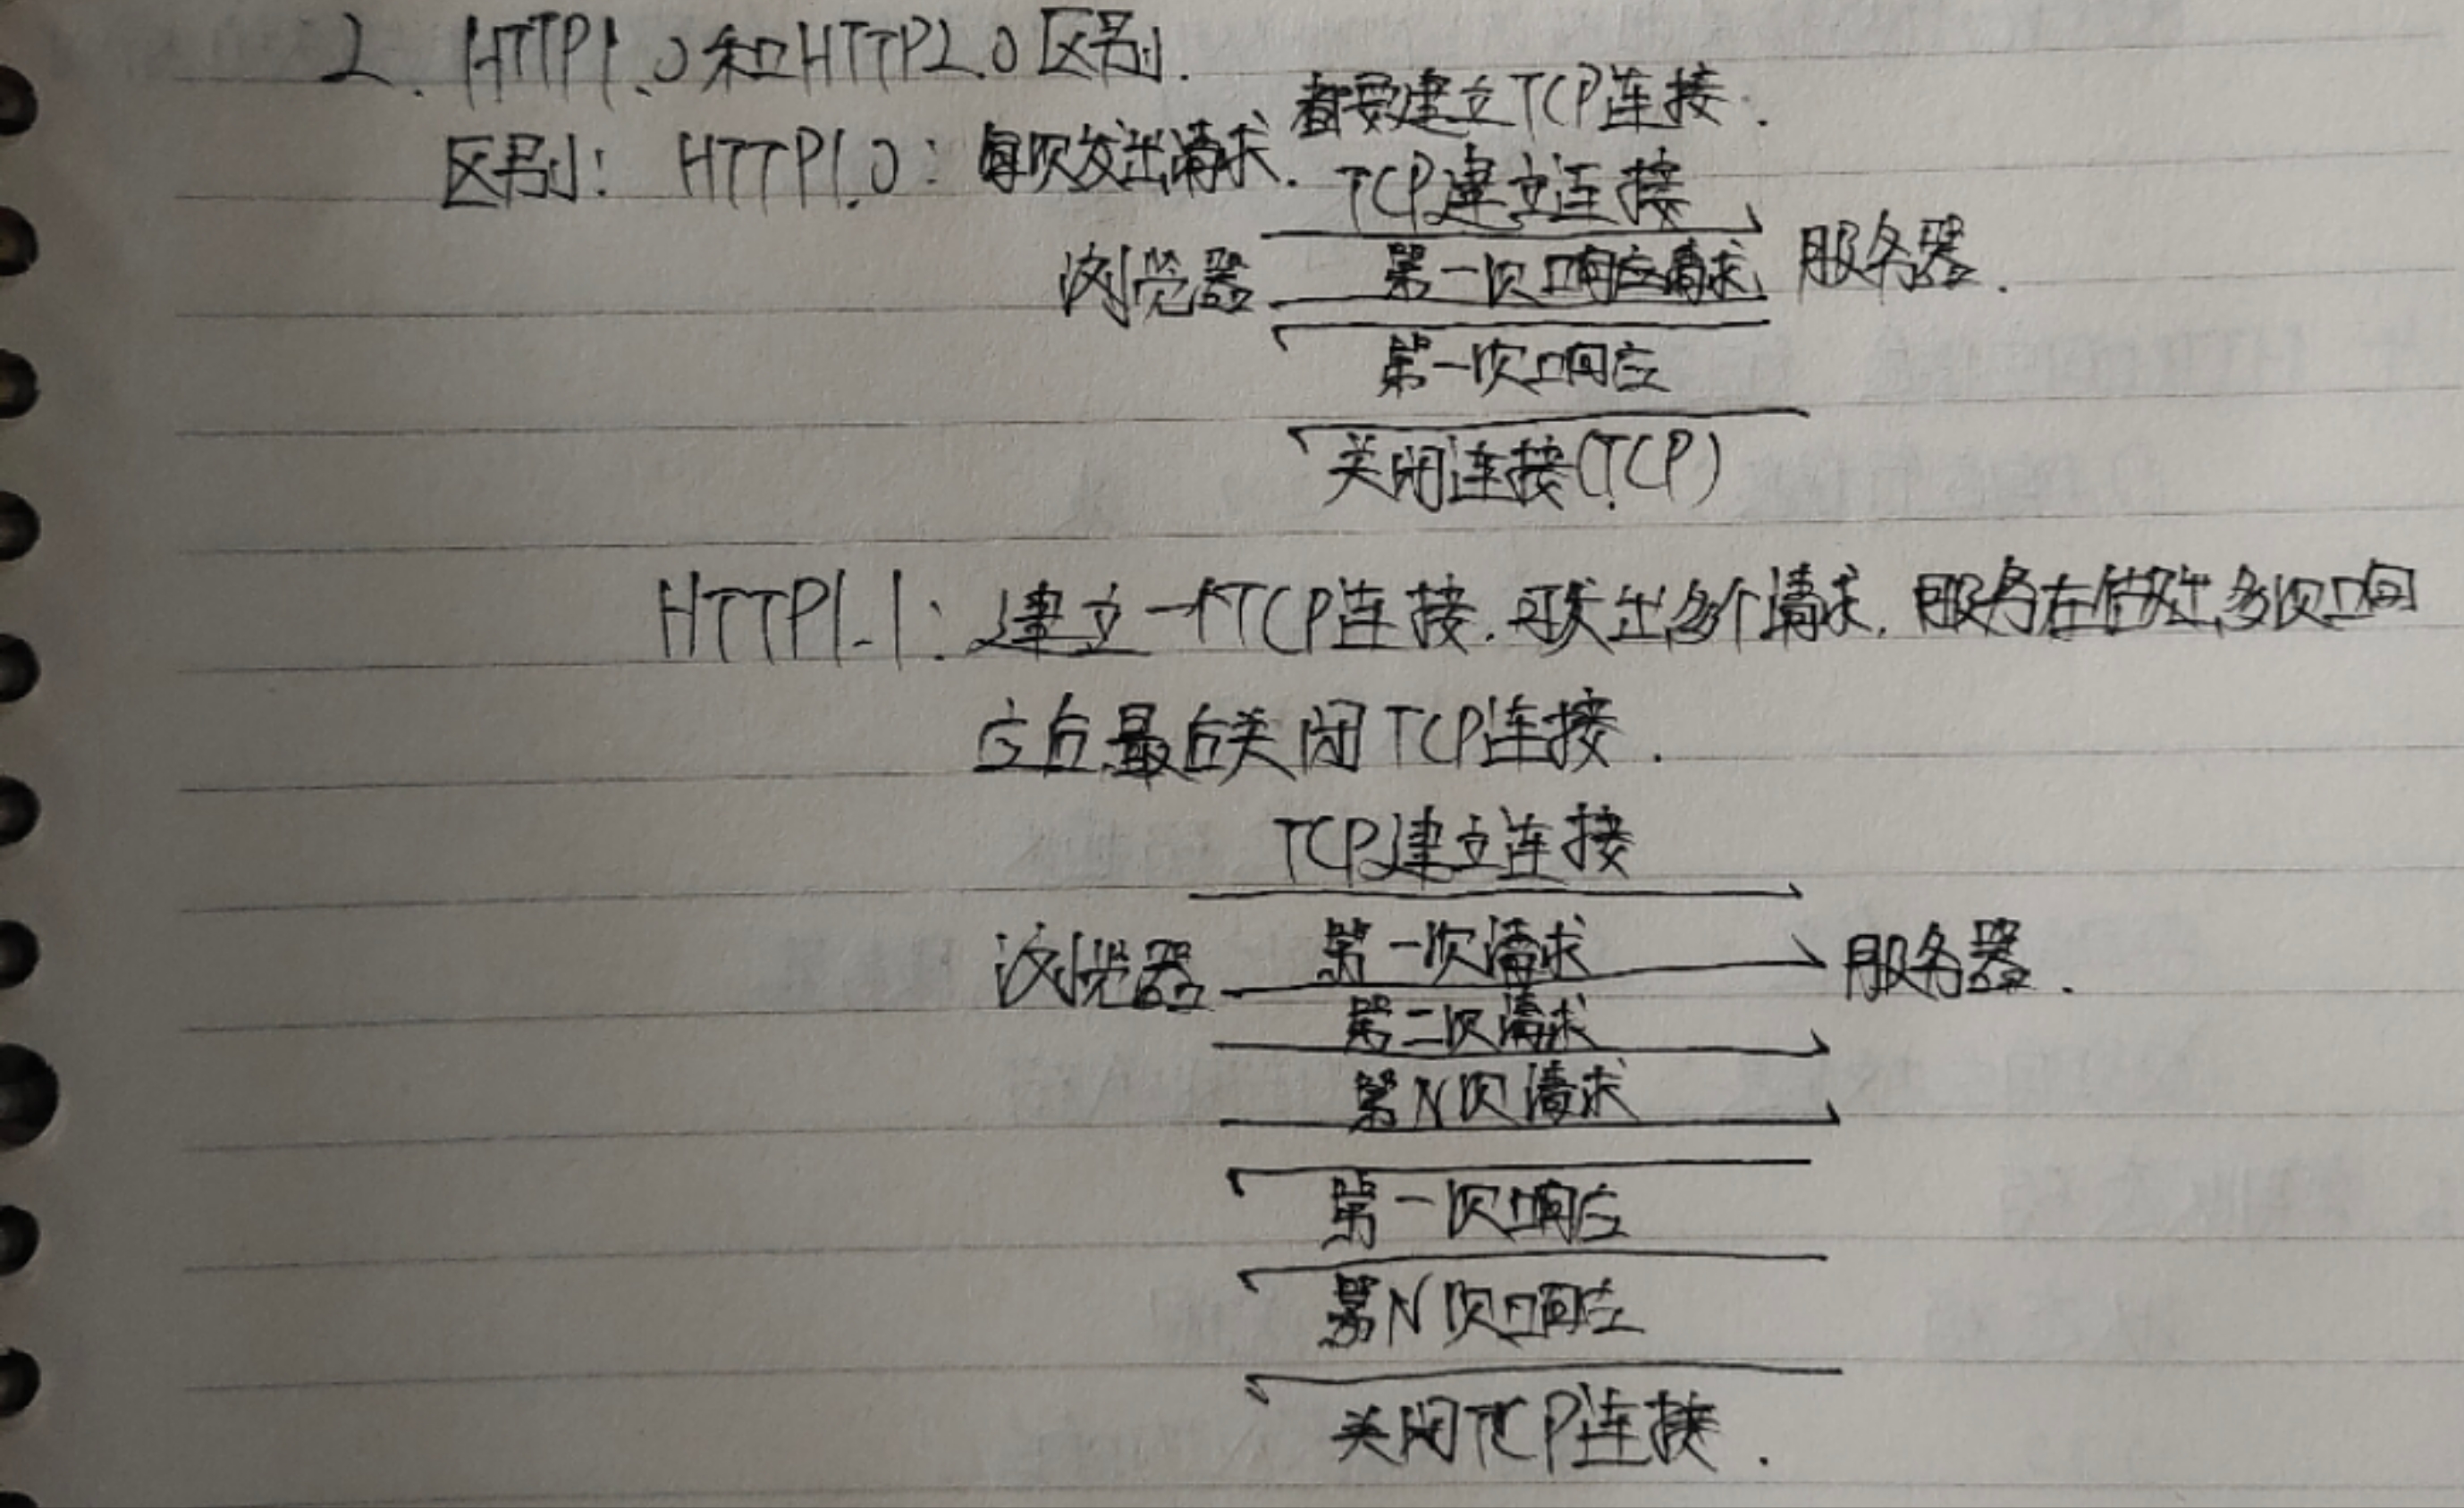 2. HTTP1.0和HTTP2.0区别.
都要建立TCP连接.
区别: HTTP1.0: 每次发出请求.
TCP建立连接
浏览器 第一次响应请求 服务器.
第一次响应
关闭连接(TCP)
HTTP1.1: 建立一个TCP连接, 可发出多个请求, 服务在做出多次响
应后最后关闭TCP连接.
TCP建立连接
浏览器 第一次请求 服务器.
第二次请求
第N次请求
第一次响应
第N次响应
关闭TCP连接.